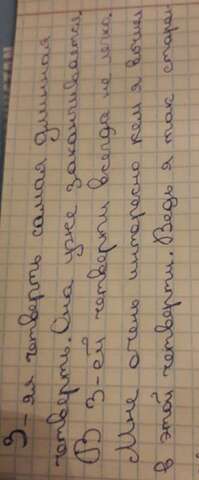 3-яя четверть самая длинная
четверть. Она уже заканчивается.
В 3-ей четверти всегда не легко.
Мне очень интересно кем я вышел
в этой четверти. Ведь я так старал